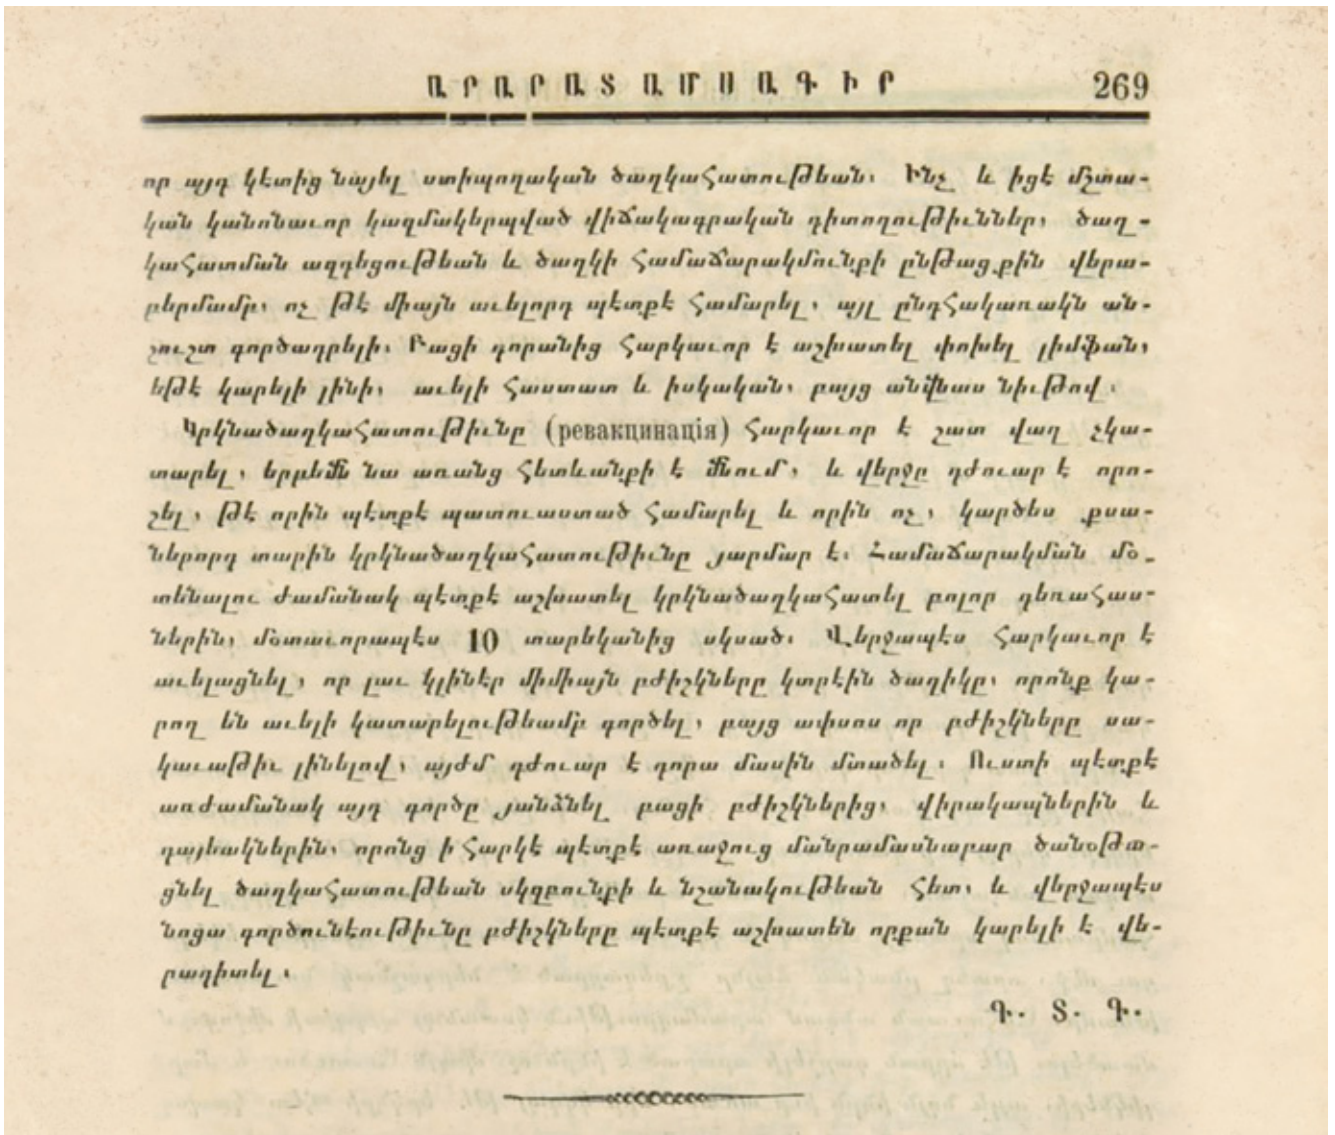 ԱՐԱՐԱՏ ԱՄՍԱԳԻՐ 269
որ այդ կէտից նայել ստիպողական ծաղկահատութեան։ Ինչ և իցէ մշտա-
կան կանոնաւոր կազմակերպված վիճակագրական դիտողութիւններ, ծաղ-
կահատման ազդեցութեան և ծաղկի համաճարակմունքի ընթացքին վերա-
բերմամբ, ոչ թէ միայն աւելորդ պէտքէ համարել, այլ ընդհակառակն ան-
շուշտ գործադրելի։ Բացի դորանից հարկաւոր է աշխատել փոխել լիմֆան,
եթէ կարելի լինի, աւելի հաստատ և իսկական, բայց անվնաս նիւթով։
Կրկնածաղկահատութիւնը (ревакцинація) հարկաւոր է շատ վաղ չկա-
տարել, երբեմն նա առանց հետևանքի է մնում, և վերջը դժուար է որո-
շել, թէ որին պէտքէ պատուաստած համարել և որին ոչ, կարծես քսա-
ներորդ տարին կրկնածաղկահատութիւնը յարմար է։ Համաճարակման մօ-
տենալու ժամանակ պէտքէ աշխատել կրկնածաղկահատել բոլոր դեռահաս-
ներին, մօտաւորապէս 10 տարեկանից սկսած։ Վերջապէս հարկաւոր է
աւելացնել, որ լաւ կլինէր միմիայն բժիշկները կտրէին ծաղիկը, որոնք կա-
րող են աւելի կատարելութեամբ գործել, բայց ափսոս որ բժիշկները սա-
կաւաթիւ լինելով, այժմ դժուար է դորա մասին մտածել։ Ուստի պէտքէ
առժամանակ այդ գործը յանձնել բացի բժիշկներից, վիրակապներին և
դայեակներին, որոնց ի հարկէ պէտքէ առաջուց մանրամասնաբար ծանօթա-
ցնել ծաղկահատութեան սկզբունքի և նշանակութեան հետ, և վերջապէս
նոցա գործունէութիւնը բժիշկները պէտքէ աշխատեն որքան կարելի է վե-
րադիտել։
Գ. Տ. Գ.